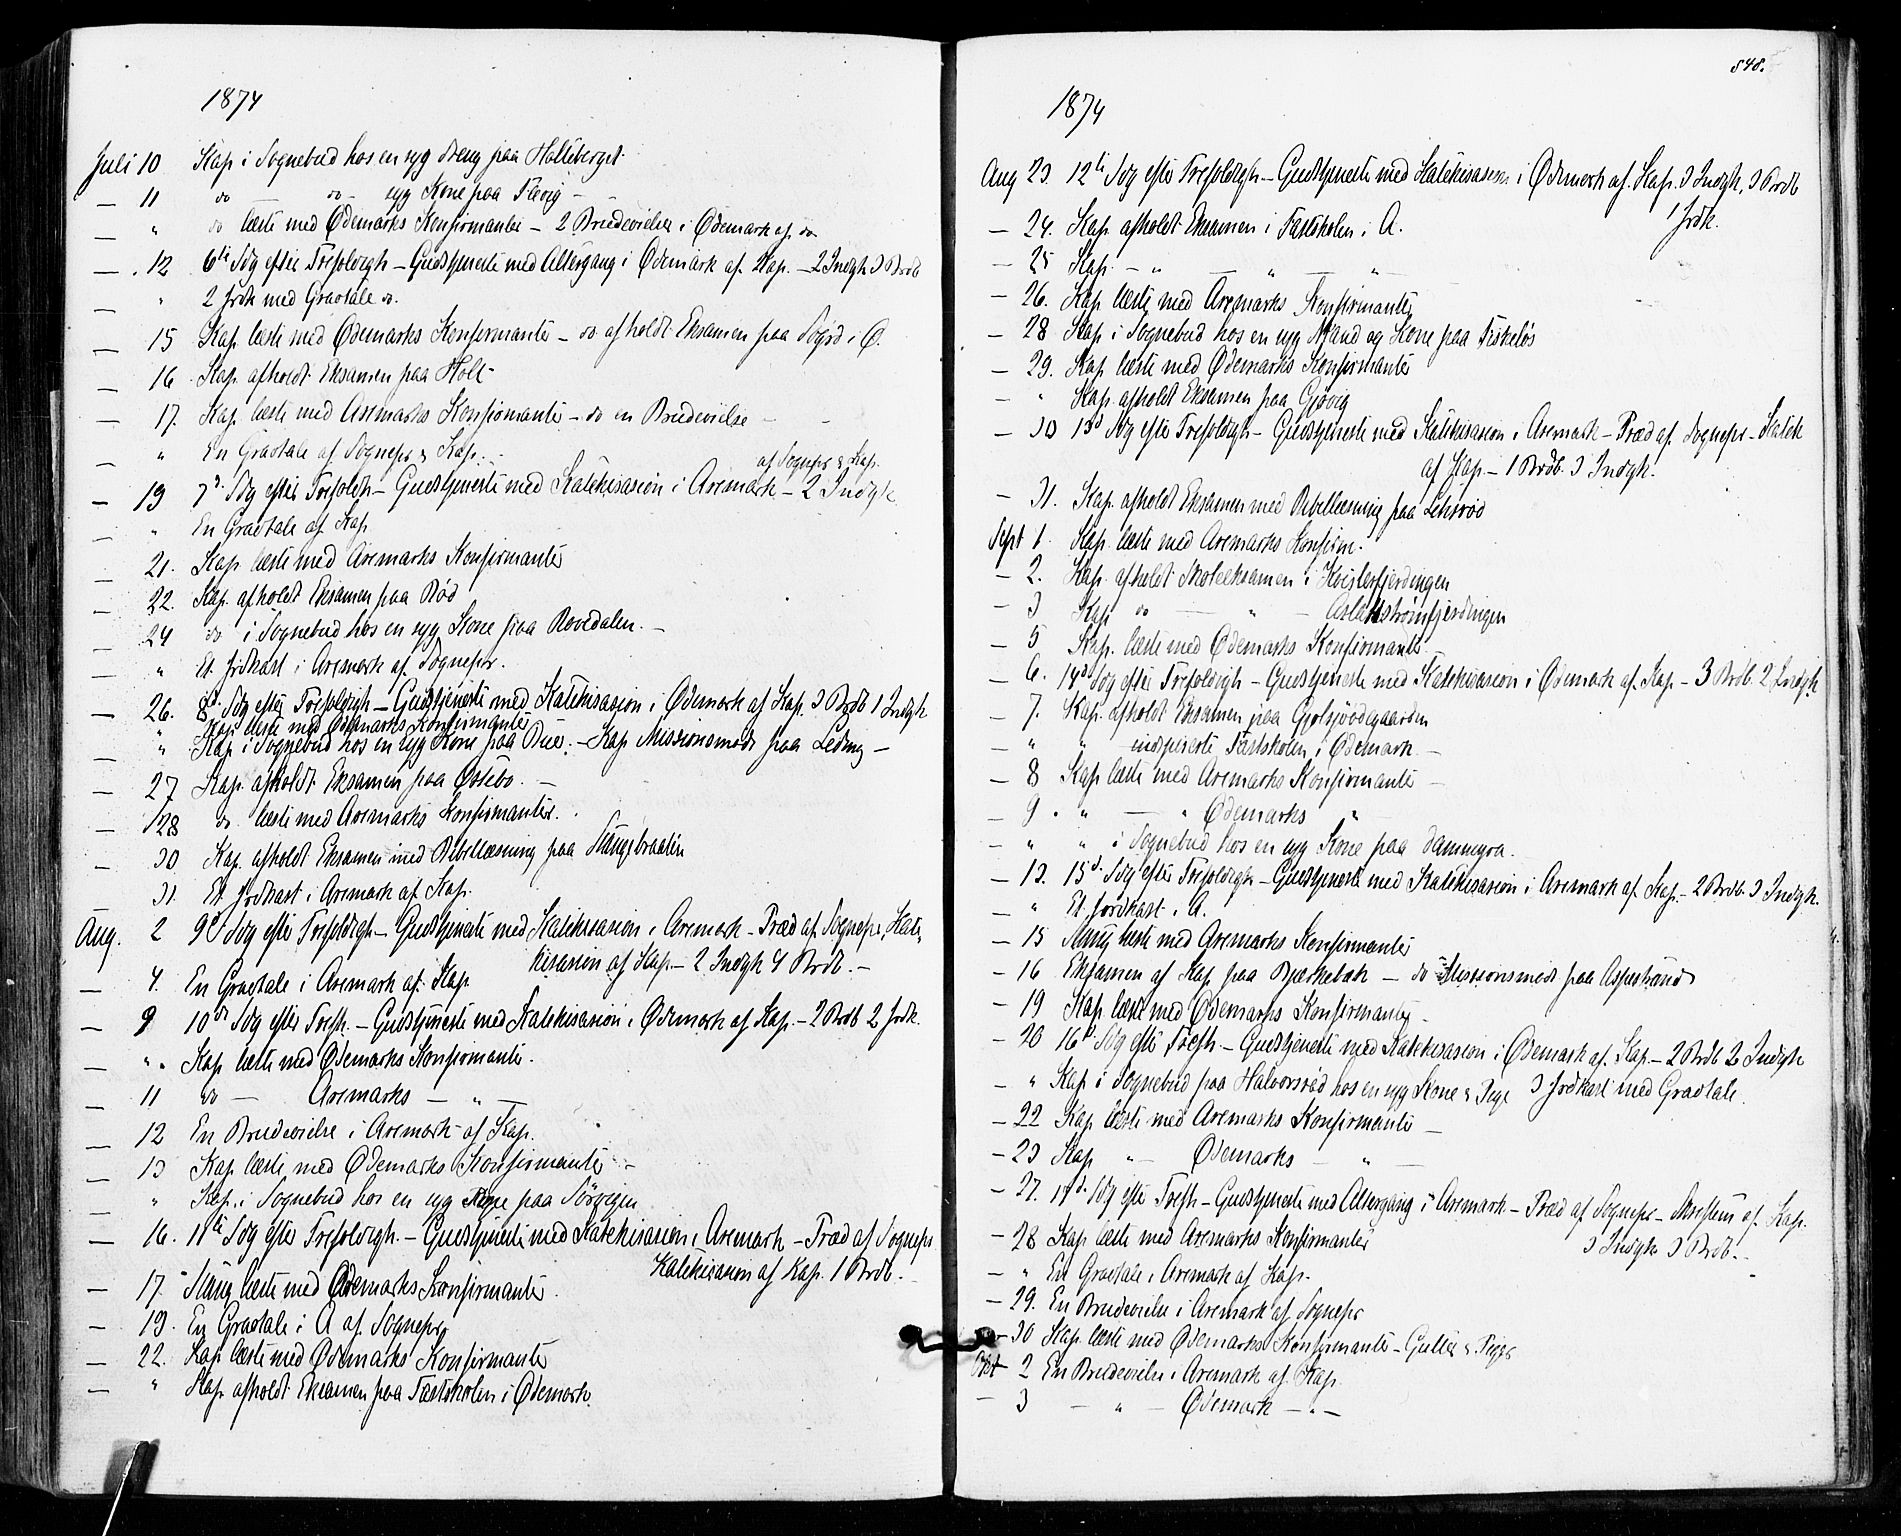 1874
Juli 10 Kap i Sognebud hos en syg Dreng paa Holleberget
— 11 do — do — syg Kone paa Tævig —
— " do læste med Ødemarks Konfirmanter — 2 Brudevielser i Ødemark af do
— 12 6te Sdg efter Trefoldigh — Gudstjeneste med Altergang i Ødemark af Kap. — 2 Indgk 3 Brdb
— " 2 Jrdk med Gravtale do.
— 15 Kap læste med Ødemarks Konfirmanter — do afholdt Eksamen paa i Ø.
— 16 Kap. afholdt Eksamen paa Holt —
— 17. Kap. læste med Aremarks Konfirmanter — do en Brudevielse —
— " En Gravtale af Sognepr & Kap. —
af Sognepr & Kap.
— 19 7d. Sdg efter Trefoldh — Gudstjeneste med Katekisasion i Aremark — 2 Indgk
— " En Gravtale af Kap
— 21. Kap læste med Aremarks Konfirmanter
— 22. Kap. afholdt Eksamen paa Rød
— 24 do i Sognebud hos en syg Kone paa Bovedalen. —
— " Et Jrdkast i Aremark af Sognepr.
— 26. 8d. Sdg efter Trefoldigh — Gudstjeneste med Katekisasion i Ødemark af Kap. 3 Brdb 1 Indgk
Kap læste med Ødemarks Konfirmanter
— " Kap i Sognebud hos en syg Kone paa Bue. — Kap Missionsmøde paa Leding —
— 27 Kap. afholdt Eksamen paa Østebo. —
— 28 do. læste med Aremarks Konfirmanter.
— 30 Kap. afholdt Eksamen med Bibellæsning paa Stangebraaten
— 31. Et Jrdkast i Aremark af Kap.
Aug. 2 9d Sdg efter Trefoldigh — Gudstjeneste med Katekisasion i Aremark — Præd af Sognepr, Kate-
kisasion af Kap — 2 Indgk 4 Brdb. —
— 4. En Gravtale i Aremark af Kap
— 9 10de Sdg efter Trefh. — Gudstjeneste med Katekisasion i Ødemark af Kap. — 2 Brdb 2 Jrdk.
— " Kap læste med Ødemarks Konfirmanter.
— 11 do — Aremarks — " —
— 12 En Brudevielse i Aremark af Kap.
— 13 Kap læste med Ødemarks Konfirmanter —
— " Kap. i Sognebud hos en syg Kone paa Sörvigen
— 16. 11te Sdg efter Trefoldigh. — Gudstjeneste med Katekisasion i Aremark — Præd af Sognepr
Katekisasion af Kap. 1 Brdb. —
— 17. læste med Ødemarks Konfirmanter.
— 19. En Gravtale i A af Sognepr
— 22. Kap læste med Ødemarks Konfirmanter
— " Kap afholdt Eksamen paa Fastskolen i Ødemark.
548.
1874
Aug 23. 12te Sdg efter Trefoldigh — Gudstjeneste med Katekisasion i Ødemark af Kap. 3 Indgk, 3 Brdb
1 Jrdk.
— 24. Kap. afholdt Eksamen i Fastskolen i A.
— 25 Kap. — " — " — " —
— 26. Kap. læste med Aremarks Konfirmanter
— 28 Kap i Sognebud hos en syg Mand og Kone paa Fiskeløs
— 29. Kap læste med Ødemarks Konfirmanter
— " Kap. afholdt Eksamen paa Gjøvig
— 30 13d Sdg efter Trefoldigh — Gudstjeneste med Katekisasion i Aremark — Præd af Sognepr — Katek
af Kap — 1 Brdb. 3 Indgk.
— 31. Kap. afholdt Eksamen med Bibellæsning paa Lihsrød
Sept 1. Kap. læste med Aremarks Konfirm.
— 2. Kap. afholdt Skoleeksamen i Kvislerfjerdingen
— 3 Kap do — " — Aslakstrømfjerdingen
— 5 Kap. læste med Ødemarks Konfirmanter
— 6. 14d Sdg efter Trefoldigh — Gudstjeneste med Katekisasion i Ødemark af Kap — 3 Brdb. 2 Indgk
— 7. Kap. afholdt Eksamen paa Gjølsjøødegaarden
— " " inspiserte Fastskolen i Ødemark —
— 8 Kap. læste med Aremarks Konfirmanter —
— 9 . " — " Ødemarks "
— " " i Sognebud hos en syg Kone paa Dammyra.
— 13. 15d. Sdg efter Trefoldigh — Gudstjeneste med Katekisasion i Aremark af Kap. — 2 Brdb. 3 Indgk.
— " Et Jordkast i A.
— 15 læste med Aremarks Konfirmanter
— 16 Eksamen af Kap paa Bjærkebæk — do Missionsmøde paa Aspestrand
— 19 Kap. læste med Ødemarks Konfirmanter —
— 20 16d Sdg efter Trefh. — Gudstjeneste med Katekisasion i Ødemark af Kap — 2 Brdb 2 Indgk
— " Kap i Sognebud paa Halvorsrød hos en syg Kone & Pige 3 Jrdkast med Gravtale.
— 22 Kap læste med Aremarks Konfirmanter —
— 23 Kap " — Ødemarks — " —
— 27. 17d. Sdg efter Trefh — Gudstjeneste med Altergang i Aremark — Præd af Sognepr — Skriftem af Kap.
3 Indgk 3 Brdb. —
— 28 Kap læste med Aremarks Konfirmanter
— " En Gravtale i Aremark af Kap.
— 29. En Brudevielse i Aremark af Sognepr
— 30 Kap. læste med Ødemarks Konfirmanter — Gutter & Piger
Okt 2 En Brudevielse i Aremark af Kap.
— 3 — " — Ødemark — " —